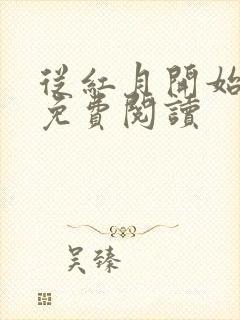 從紅月開始
免費閱讀
吴臻